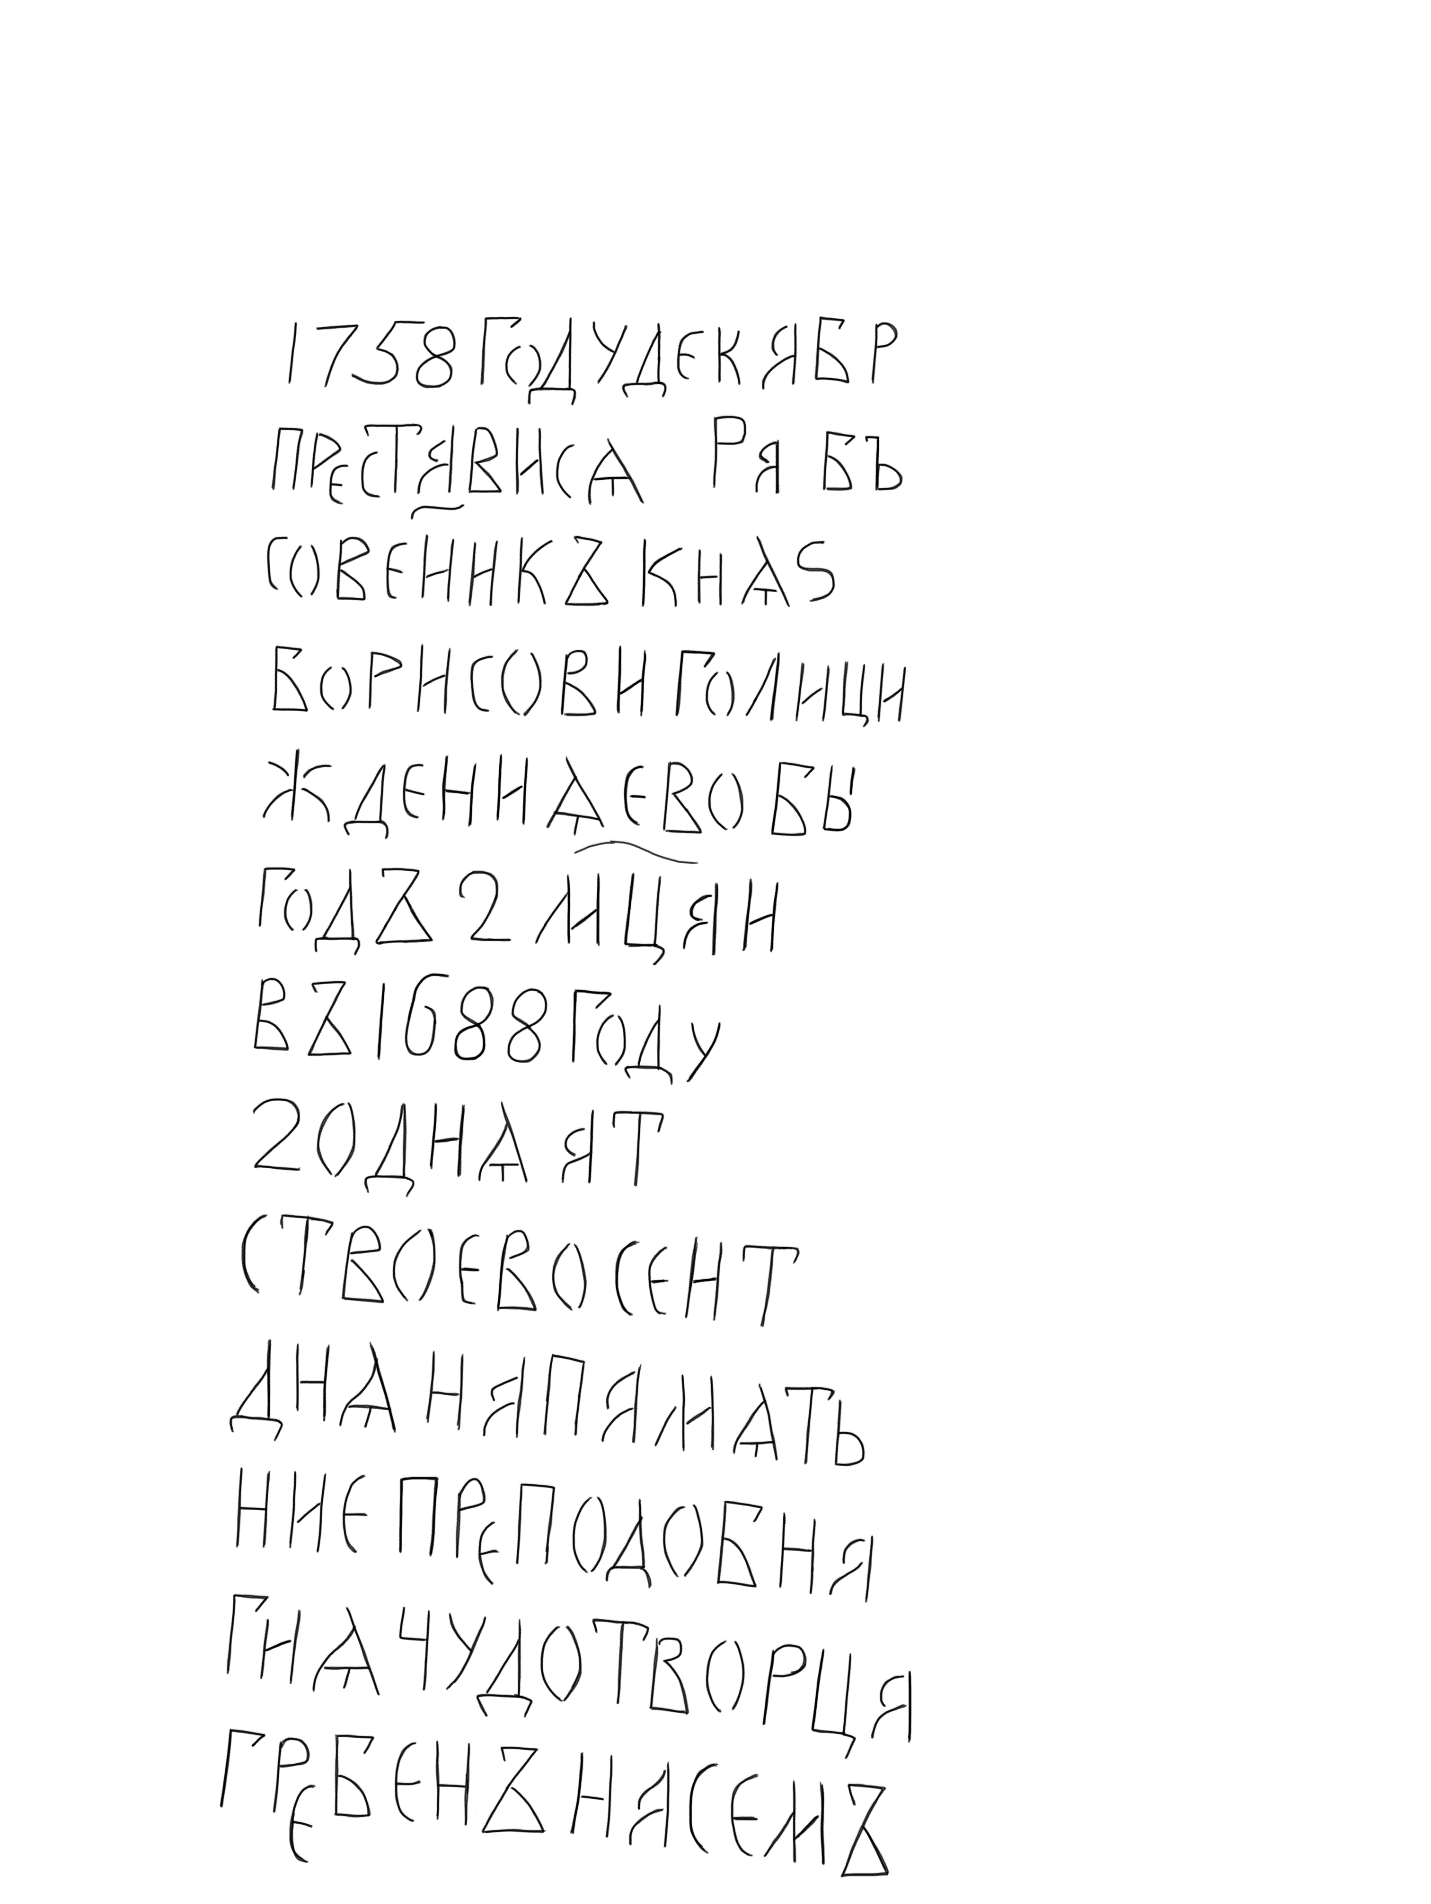 1758 ГОДУ ДЕКАБР
ПРЕСТАВИСѦ РАБЪ
СОВЕНИКЪ КНѦЅ
БОРИСОВИ ГОЛИЦИ
ЖДЕНИѦ ЕВО БЫ
ГОДЪ 2 МЦ АН
ВЪ 1688 ГОДУ
20 ДНѦ А Т
СТВОЕВО СЕНТ
ДНѦ НА ПАМѦТЬ
НИЕ ПРЕПОДОБНА
ГИѦ ЧУДОТВОРЦА
ГРЕБЕНЪ НА СЕМЪ